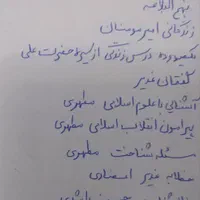 نهج البلاغه
زندگانی امیر مومنان
یکصد و ده درس زندگی از سیره حضرت علی
گلستان غدیر
آشنایی با علوم اسلامی مطهری
پیرامون انقلاب اسلامی مطهری
مسئله شناخت مطهری
خطابه غدیر انصاری